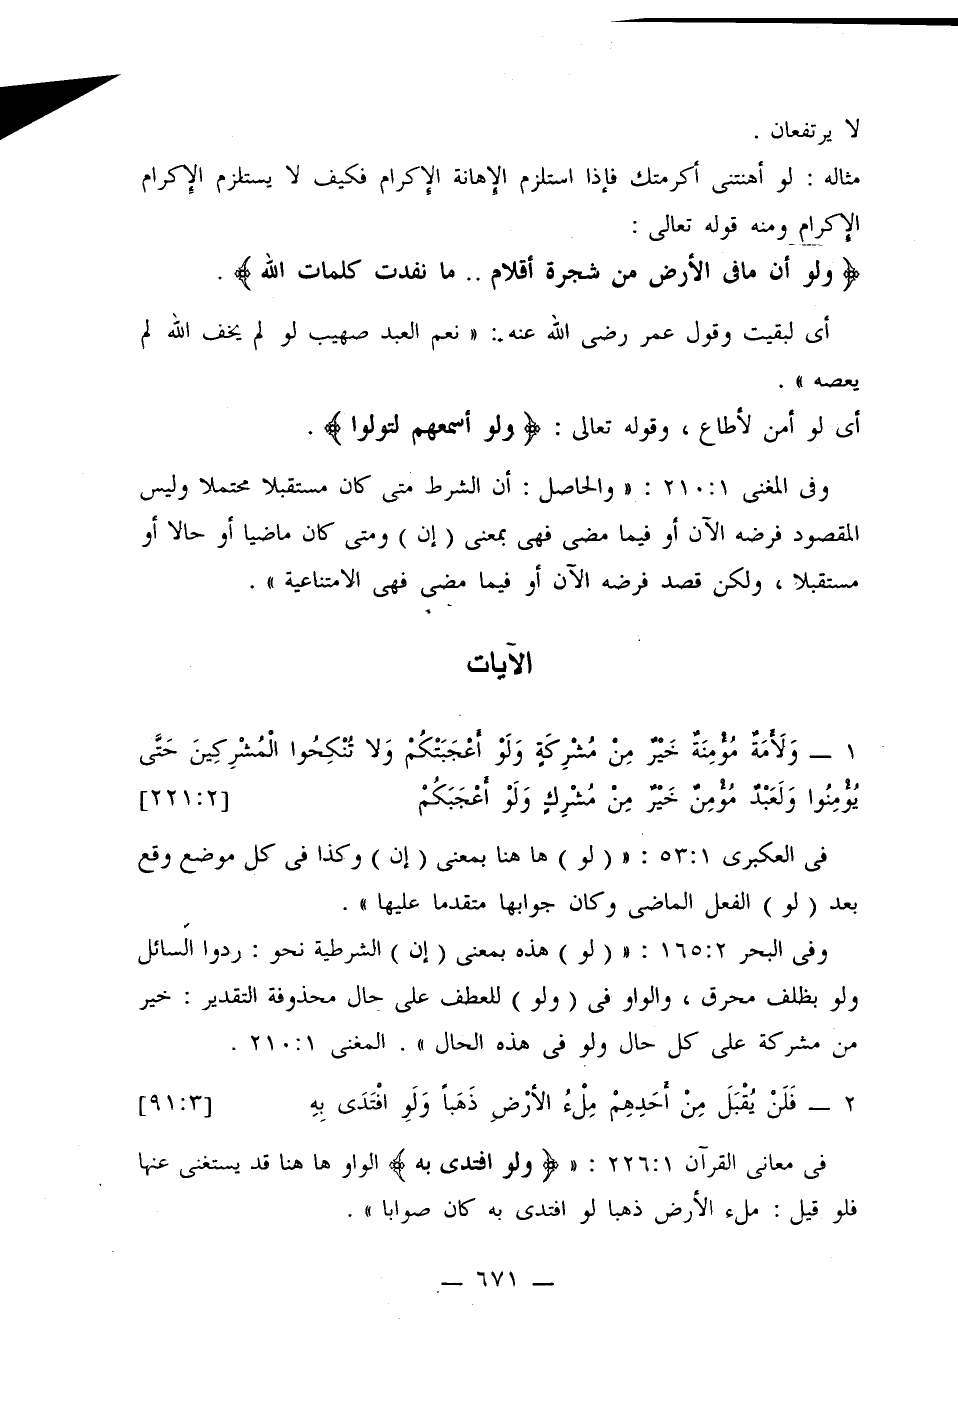 لا يرتفعان .
مثاله : لو أهنتنى أكرمتك فإذا استلزم الإهانة الإكرام فكيف لا يستلزم الإكرام
الإكرام ومنه قوله تعالى :
﴿ ولو أن مافى الأرض من شجرة أقلام .. ما نفدت كلمات الله ﴾ .
أى لبقيت وقول عمر رضى الله عنه : « نعم العبد صهيب لو لم يخف الله لم
يعصه » .
أى لو أمن لأطاع ، وقوله تعالى : ﴿ ولو أسمعهم لتولوا ﴾ .
وفى المغنى ٢١٠:١ : « والحاصل : أن الشرط متى كان مستقبلا محتملا وليس
المقصود فرضه الآن أو فيما مضى فهى بمعنى ( إن ) ومتى كان ماضيا أو حالا أو
مستقبلا ، ولكن قصد فرضه الآن أو فيما مضى فهى الامتناعية » .
الآيات
١ ــ وَلَأَمَةٌ مُؤْمِنَةٌ خَيْرٌ مِنْ مُشْرِكَةٍ وَلَوْ أَعْجَبَتْكُمْ وَلا تُنْكِحُوا الْمُشْرِكِينَ حَتَّى
يُؤْمِنُوا وَلَعَبْدٌ مُؤْمِنٌ خَيْرٌ مِنْ مُشْرِكٍ وَلَوْ أَعْجَبَكُمْ [٢٢١:٢]
فى العكبرى ٥٣:١ : « ( لو ) ها هنا بمعنى ( إن ) وكذا فى كل موضع وقع
بعد ( لو ) الفعل الماضى وكان جوابها متقدما عليها » .
وفى البحر ١٦٥:٢ : « ( لو ) هذه بمعنى ( إن ) الشرطية نحو : ردوا السائل
ولو بظلف محرق ، والواو فى ( ولو ) للعطف على حال محذوفة التقدير : خير
من مشركة على كل حال ولو فى هذه الحال » . المغنى ٢١٠:١ .
٢ ــ فَلَنْ يُقْبَلَ مِنْ أَحَدِهِمْ مِلْءُ الأَرْضِ ذَهَباً وَلَوِ افْتَدَى بِهِ [٩١:٣]
فى معانى القرآن ٢٢٦:١ : « ﴿ ولو افتدى به ﴾ الواو ها هنا قد يستغنى عنها
فلو قيل : ملء الأرض ذهبا لو افتدى به كان صوابا » .
ــ ٦٧١ ــ